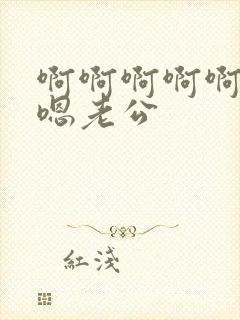 啊啊啊啊啊
嗯老公
红浅